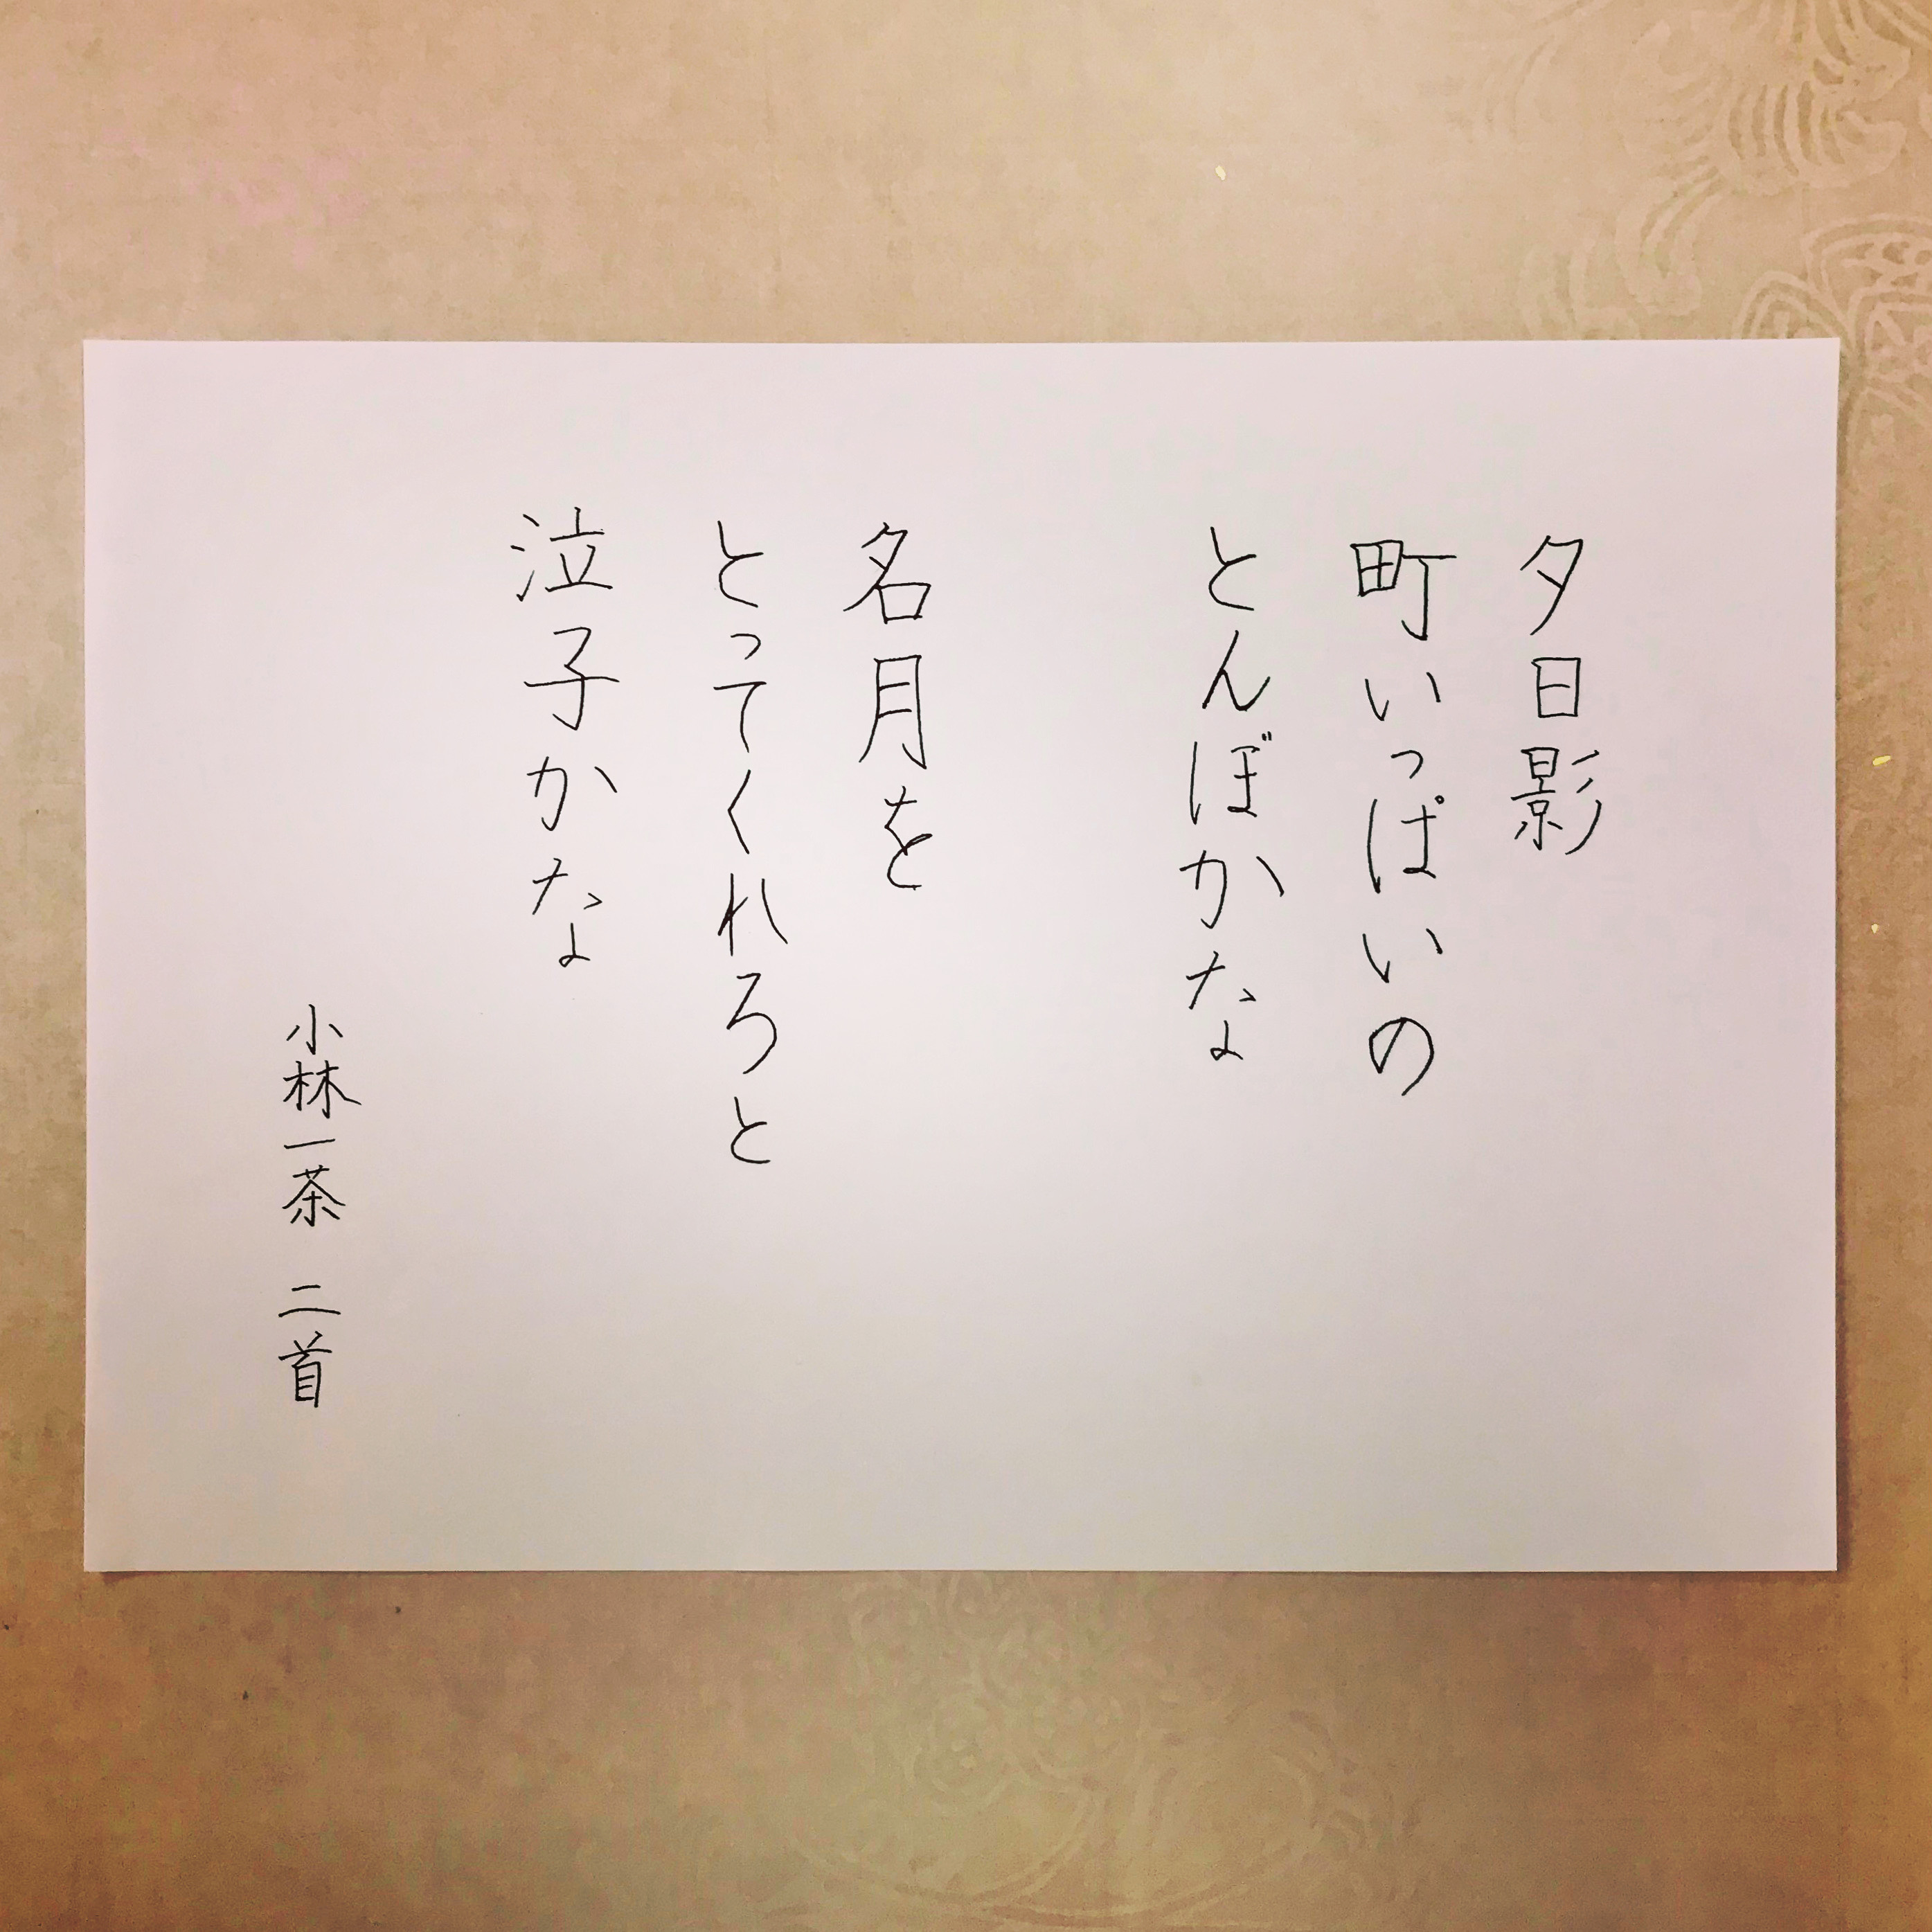 夕日影
町いっぱいの
とんぼかな
名月を
とってくれろと
泣子かな
小林一茶 二首